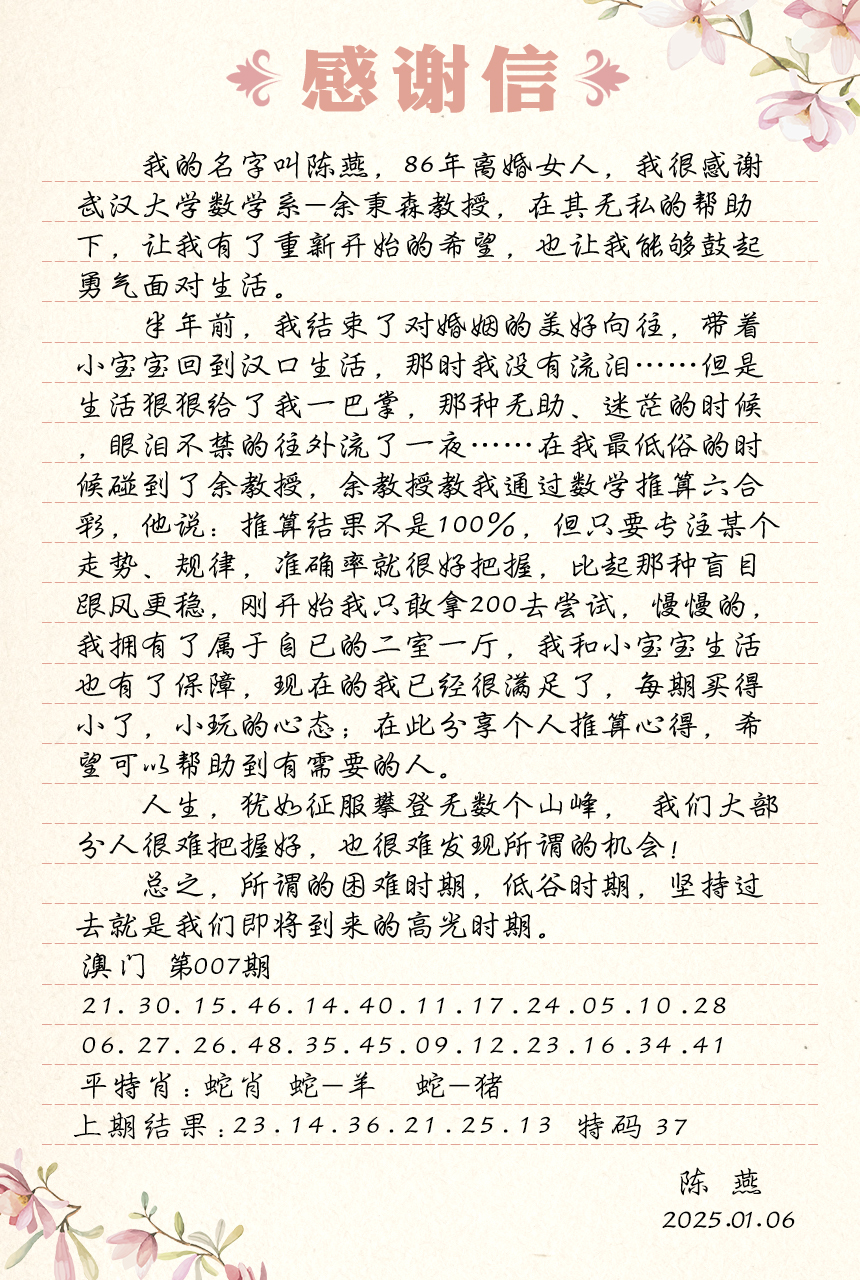 感谢信
我的名字叫陈燕，86年离婚女人，我很感谢
武汉大学数学系—余秉森教授，在其无私的帮助
下，让我有了重新开始的希望，也让我能够鼓起
勇气面对生活。
半年前，我结束了对婚姻的美好向往，带着
小宝宝回到汉口生活，那时我没有流泪……但是
生活狠狠给了我一巴掌，那种无助、迷茫的时候
，眼泪不禁的往外流了一夜……在我最低俗的时
候碰到了余教授，余教授教我通过数学推算六合
彩，他说：推算结果不是100%，但只要专注某个
走势、规律，准确率就很好把握，比起那种盲目
跟风更稳，刚开始我只敢拿200去尝试，慢慢的，
我拥有了属于自已的二室一厅，我和小宝宝生活
也有了保障，现在的我已经很满足了，每期买得
小了，小玩的心态；在此分享个人推算心得，希
望可以帮助到有需要的人。
人生，犹如征服攀登无数个山峰， 我们大部
分人很难把握好，也很难发现所谓的机会！
总之，所谓的困难时期，低谷时期，坚持过
去就是我们即将到来的高光时期。
澳门 第007期
21.30.15.46.14.40.11.17.24.05.10.28
06.27.26.48.35.45.09.12.23.16.34.41
平特肖：蛇肖 蛇—羊 蛇—猪
上期结果：23.14.36.21.25.13 特码 37
陈 燕
2025.01.06